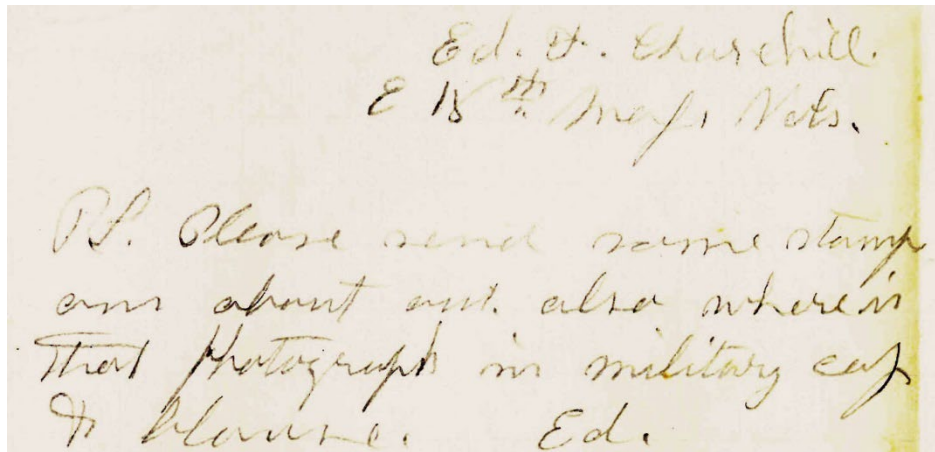 Ed. F. Churchill.
E 18th Mass Vols.
P.S. Please send some stamps
am about out. also where is
that Photograph in military cap
& blouse. Ed.